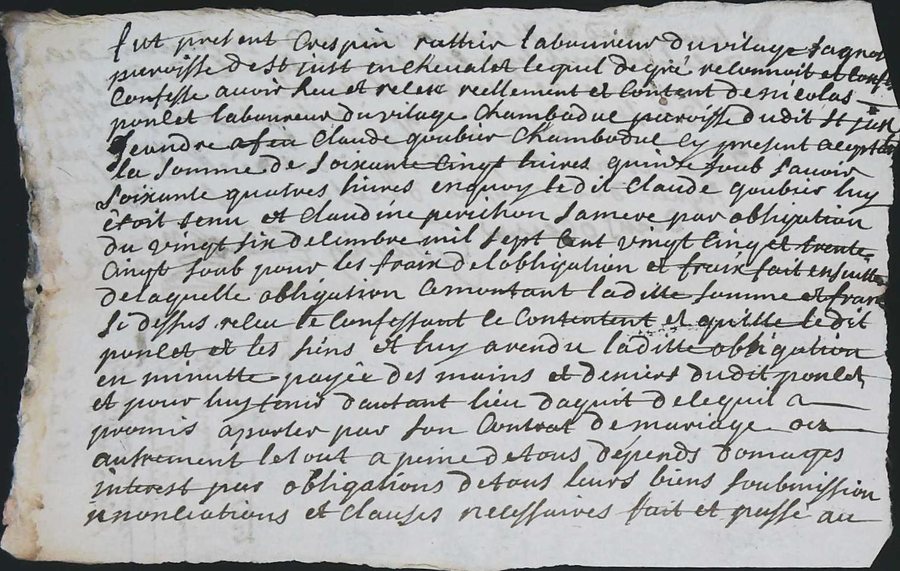 fut present Crespin rathier laboureur du vilage
paroisse de st just en chevalet lequel de gré reconnoit et confes
confesse avoir heu et receu reellement et content de nicolas
poncet laboureur du vilage Chambodue paroisse dudit st just
gendre a feu Claude goubier Chambodue cy present aceptant
la somme de soixante cinq livres quinze soub savoir
soixante quatres livres enquoy ledit Claude goubier luy
étoit tenu et Claudine perichon samere par obligation
du vingt six decembre mil sept cent vingt cinq et trente
cinq soub pour les frais de lobligation et frais fait ensuitte
de laquelle obligation ce montant laditte somme et frais
si dessus receu ce confessant ce contentent et quitte ledit
poncet et les siens et luy a rendu laditte obligation
en minutte payée des mains et deniers dudit poncet
et pour luy tenir dautant lieu daquit de lequil a
promis aporter par son Contrat de mariage ou
autrement le tout a peine de tous dépends domages
interest par obligations de tous leurs biens soubmission
renonciations et clauses necessaires fait et passé au